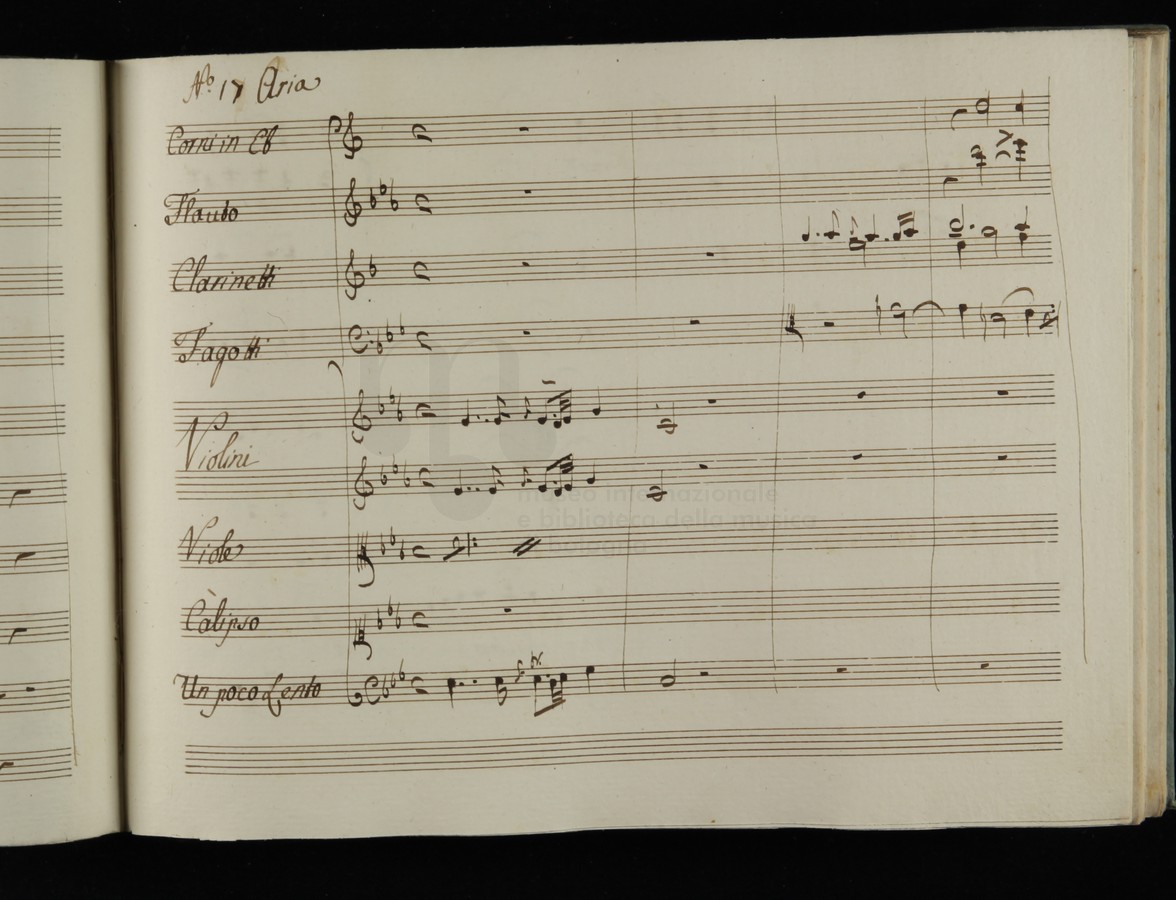 No. 17 Aria
Corni in Eb
Flauto
Clarinetti
Fagotti
Violini
Viole
Càlipso
Un poco Lento
museo internazionale
e biblioteca della musica
bologna